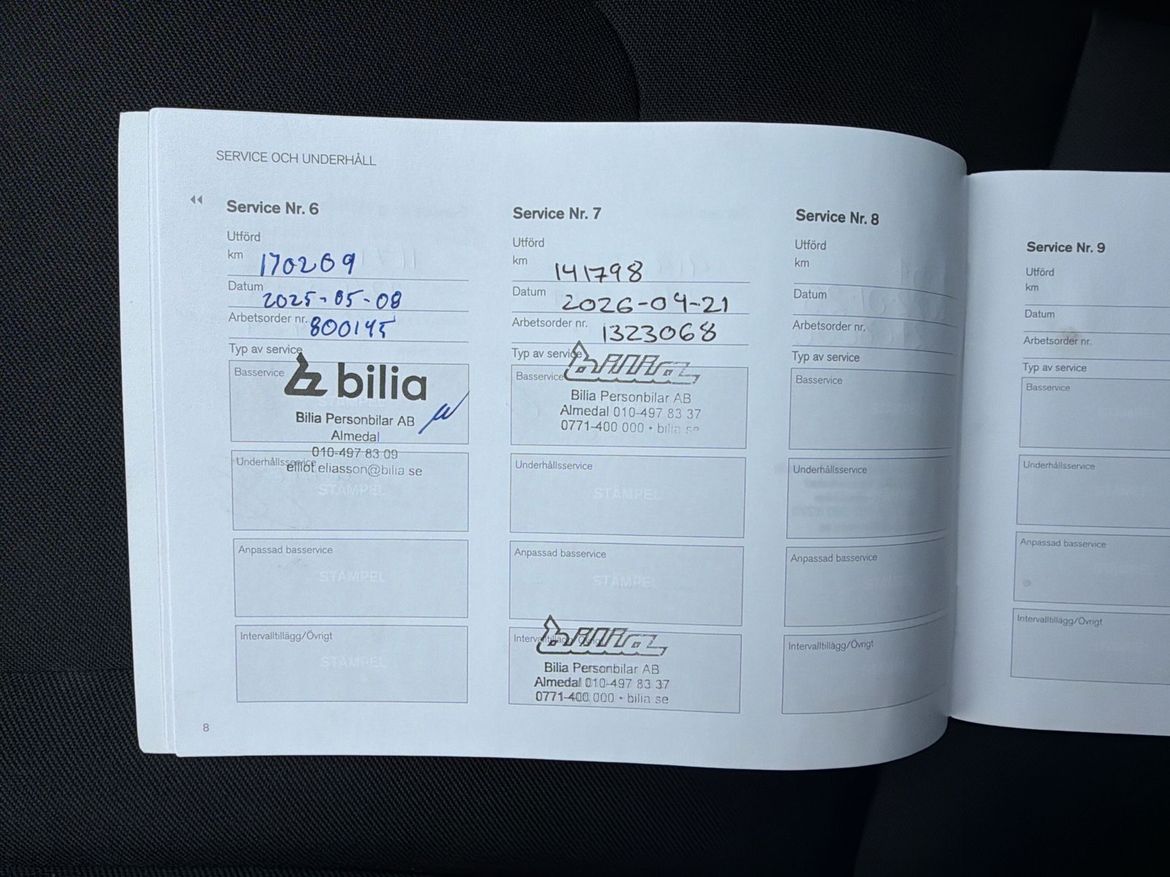 SERVICE OCH UNDERHÅLL
Service Nr. 6
Utförd
km 170209
Datum 2025-05-08
Arbetsorder nr. 800145
Typ av service
Basservice
bilia
Bilia Personbilar AB
Almedal
010-497 83 09
Underhållsservice
elliot.eliasson@bilia.se
STÄMPEL
Anpassad basservice
STÄMPEL
Intervalltillägg/Övrigt
STÄMPEL
8
Service Nr. 7
Utförd
km 141798
Datum 2026-04-21
Arbetsorder nr. 1323068
Typ av service
bilia
Basservice
Bilia Personbilar AB
Almedal 010-497 83 37
0771-400 000 • bilia.se
Underhållsservice
STÄMPEL
Anpassad basservice
STÄMPEL
bilia
Intervalltillägg/Övrigt
Bilia Personbilar AB
Almedal 010-497 83 37
0771-400 000 • bilia.se
Service Nr. 8
Utförd
km
Datum
Arbetsorder nr.
Typ av service
Basservice
Underhållsservice
Anpassad basservice
Intervalltillägg/Övrigt
Service Nr. 9
Utförd
km
Datum
Arbetsorder nr.
Typ av service
Basservice
Underhållsservice
Anpassad basservice
Intervalltillägg/Övrigt